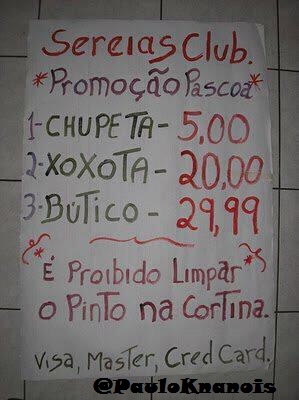 Sereias Club.
*Promoção Pascoa*
1-CHUPETA- 5,00
2-XOXOTA- 20,00
3-BÚTICO- 29,99
É Proibido Limpar
o Pinto na Cortina.
Visa, Master, Cred Card.
@PauloKnanois